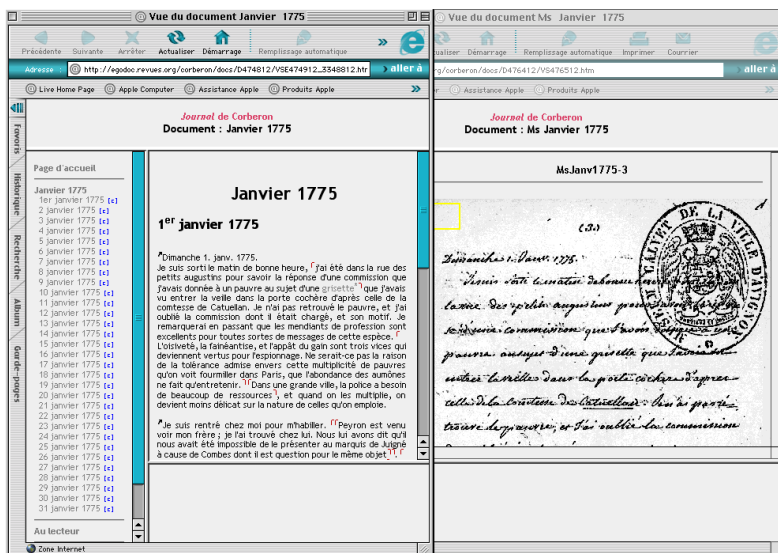 Vue du document Janvier 1775
Précédente Suivante Arrêter Actualiser Démarrage Remplissage automatique »
Adresse : http://egodoc.revues.org/corberon/docs/D474812/VSE474912_3348812.htr aller à
Live Home Page Apple Computer Assistance Apple Produits Apple »
Favoris
Historique
Recherche
Album
Garde-pages
Journal de Corberon
Document : Janvier 1775
Page d'accueil
Janvier 1775
1er janvier 1775 [c]
2 janvier 1775 [c]
3 janvier 1775 [c]
4 janvier 1775 [c]
5 janvier 1775 [c]
6 janvier 1775 [c]
7 janvier 1775 [c]
8 janvier 1775 [c]
9 janvier 1775 [c]
10 janvier 1775 [c]
11 janvier 1775 [c]
12 janvier 1775 [c]
13 janvier 1775 [c]
14 janvier 1775 [c]
15 janvier 1775 [c]
16 janvier 1775 [c]
17 janvier 1775 [c]
18 janvier 1775 [c]
19 janvier 1775 [c]
20 janvier 1775 [c]
21 janvier 1775 [c]
22 janvier 1775 [c]
23 janvier 1775 [c]
24 janvier 1775 [c]
25 janvier 1775 [c]
26 janvier 1775 [c]
27 janvier 1775 [c]
28 janvier 1775 [c]
29 janvier 1775 [c]
30 janvier 1775 [c]
31 janvier 1775 [c]
Au lecteur
Janvier 1775
1er janvier 1775
Dimanche 1. janv. 1775.
Je suis sorti le matin de bonne heure, j'ai été dans la rue des
petits augustins pour savoir la réponse d'une commission que
j'avais donnée à un pauvre au sujet d'une grisette que j'avais
vu entrer la veille dans la porte cochère d'après celle de la
comtesse de Catuellan. Je n'ai pas retrouvé le pauvre, et j'ai
oublié la commission dont il était chargé, et son motif. Je
remarquerai en passant que les mendiants de profession sont
excellents pour toutes sortes de messages de cette espèce.
L'oisiveté, la fainéantise, et l'appât du gain sont trois vices qui
deviennent vertus pour l'espionnage. Ne serait-ce pas la raison
de la tolérance admise envers cette multiplicité de pauvres
qu'on voit fourmiller dans Paris, que l'abondance des aumônes
ne fait qu'entretenir. Dans une grande ville, la police a besoin
de beaucoup de ressources, et quand on les multiplie, on
devient moins délicat sur la nature de celles qu'on emploie.
Je suis rentré chez moi pour m'habiller. Peyron est venu
voir mon frère ; je l'ai trouvé chez lui. Nous lui avons dit qu'il
nous avait été impossible de le présenter au marquis de Juigné
à cause de Combes dont il est question pour le même objet.
Zone Internet
Vue du document Ms Janvier 1775
ualiser Démarrage Remplissage automatique Imprimer Courrier
rg/corberon/docs/D476412/VS476512.htm aller à
r Assistance Apple Produits Apple »
Journal de Corberon
Document : Ms Janvier 1775
MsJanv1775-3
(3.)
MUSEE CALVET DE LA VILLE D'AVIGNON
Dimanche 1. Janv. 1775.
Je suis sorti le matin de bonne
la rue des petits augustins pour
une commission que j'avais
pauvre au sujet d'une grisette que j'avais
entrer la veille dans la porte cochere d'après
celle de la Comtesse de Catuellan. Je n'ai pas re
trouvé le pauvre, et j'ai oublié la commission